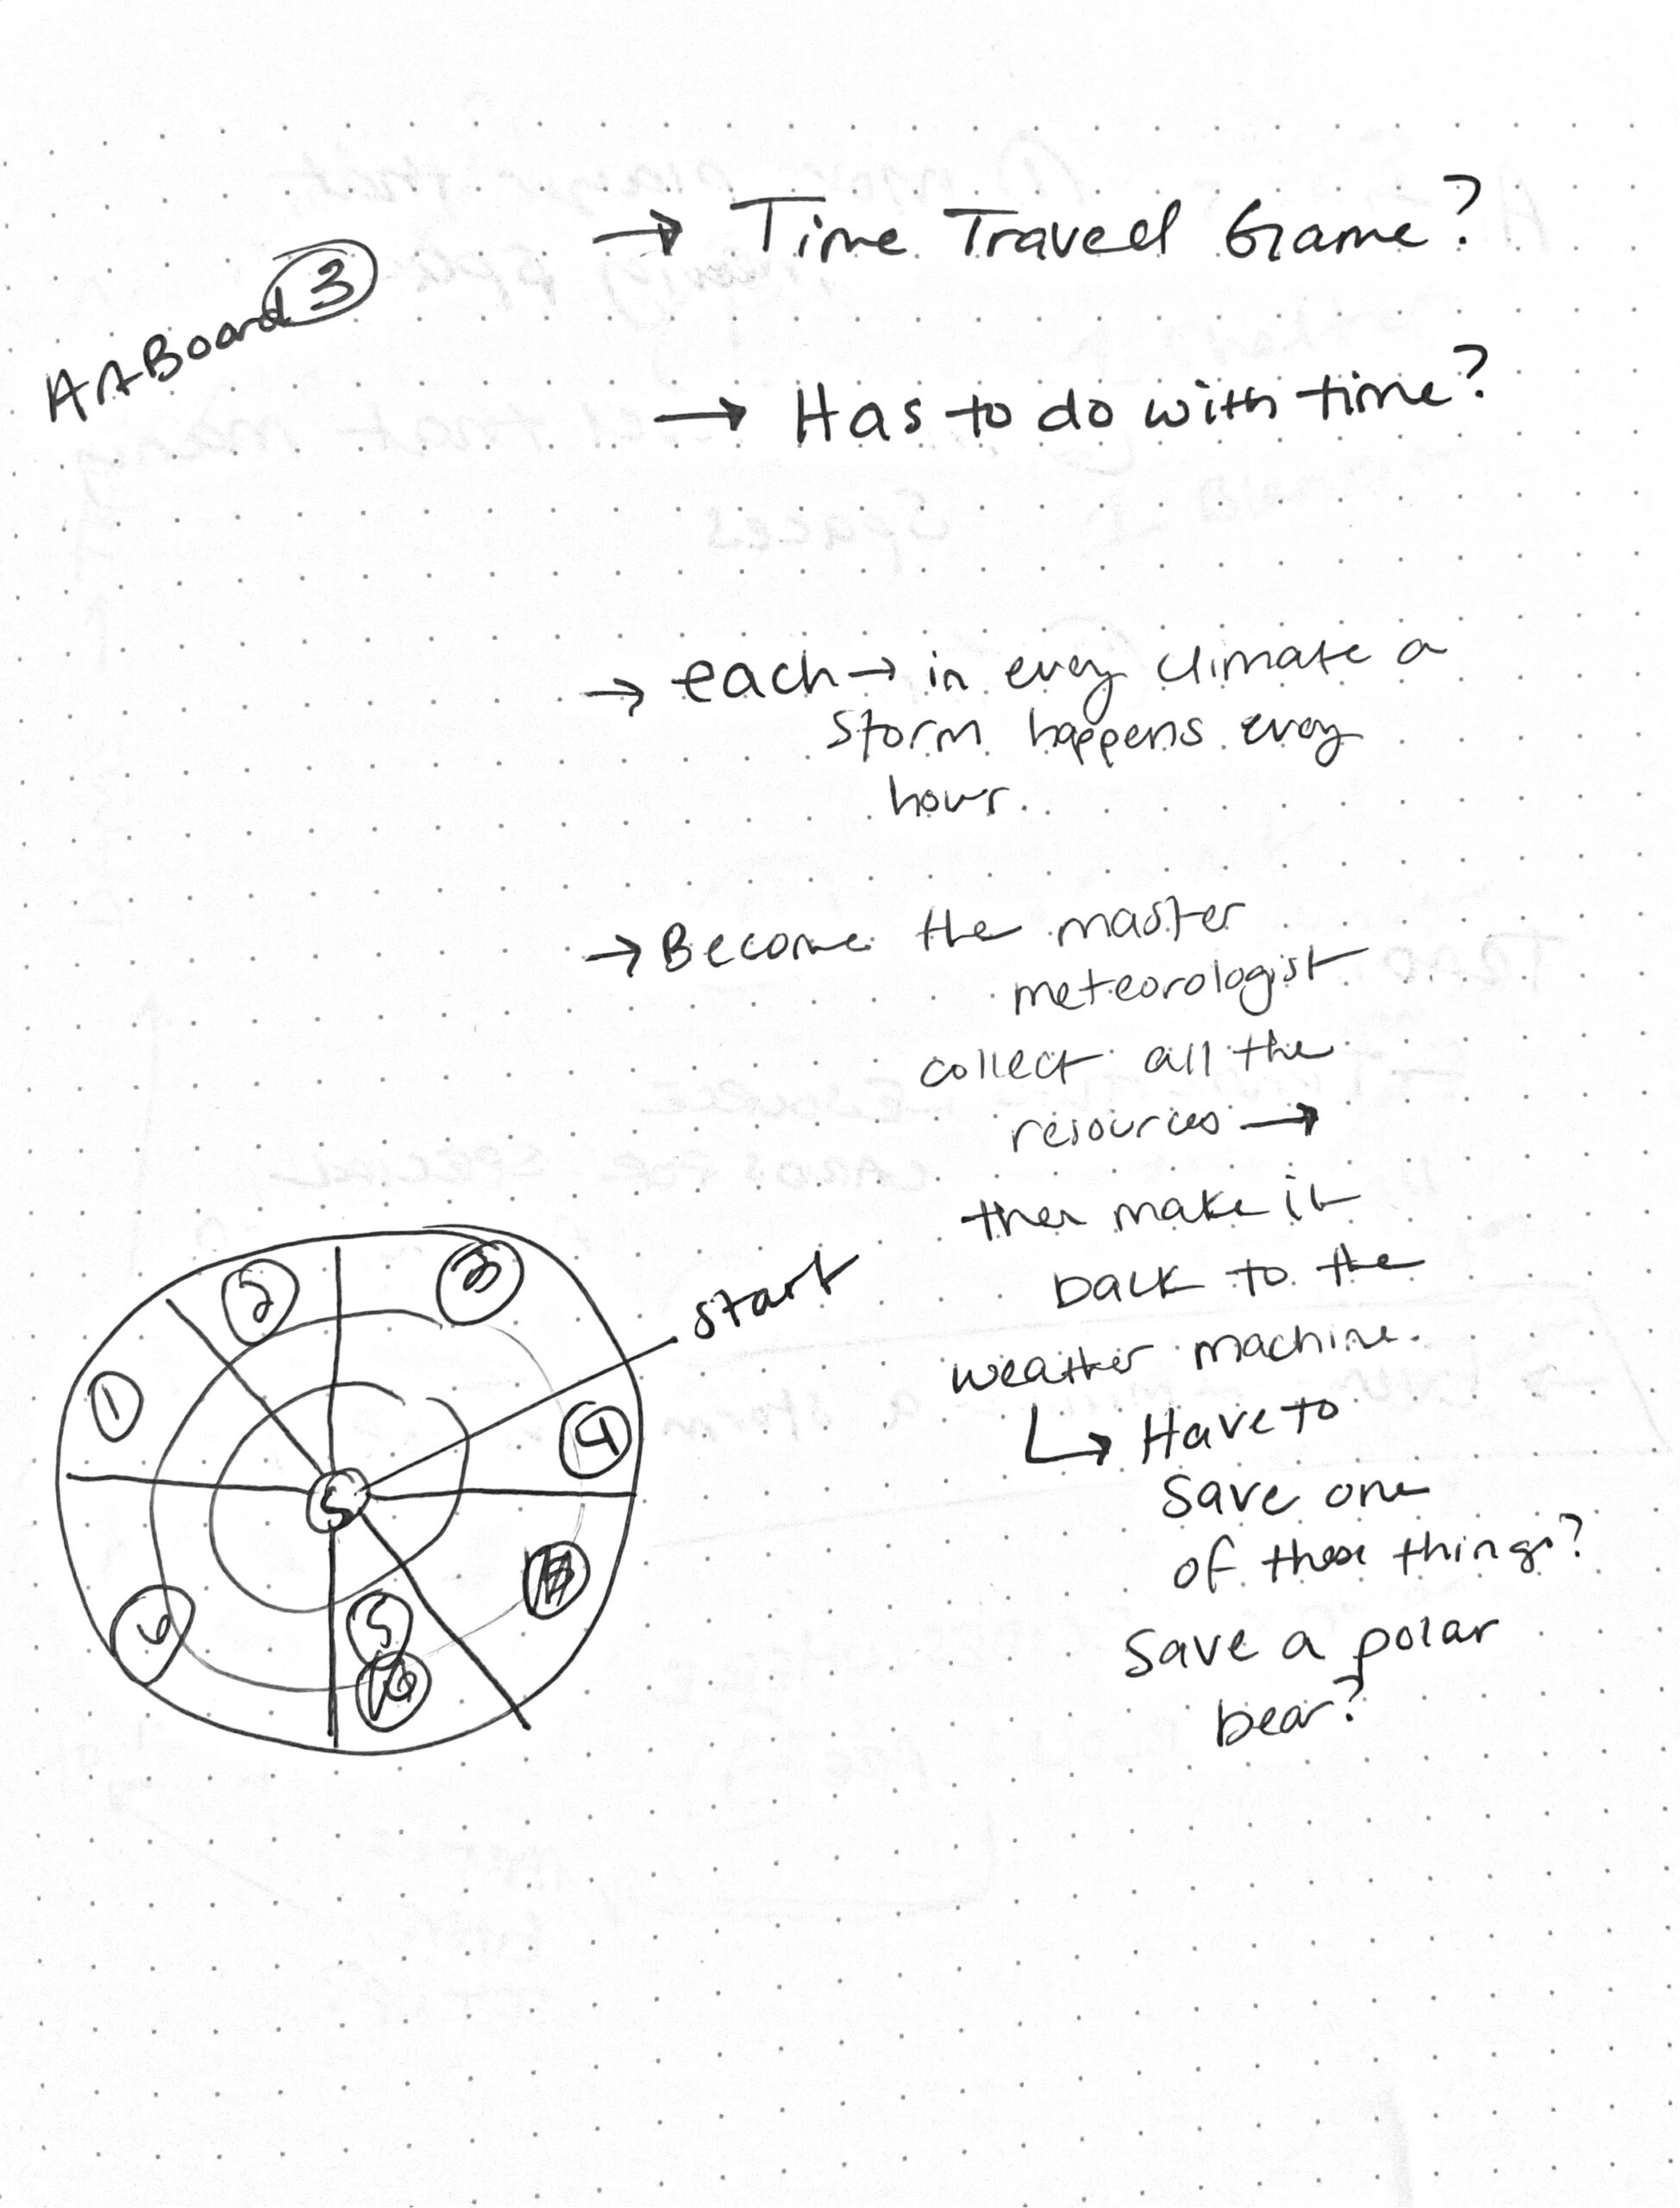 ArtBoard 3
→ Time Travel Game?
→ Has to do with time?
→ each → in every climate a
storm happens every
hour.
→ Become the master
meteorologist
collect all the
resources →
then make it
back to the
weather machine.
↳ Have to
save one
of these things?
Save a polar
bear?
start
2
3
1
4
S
5
6